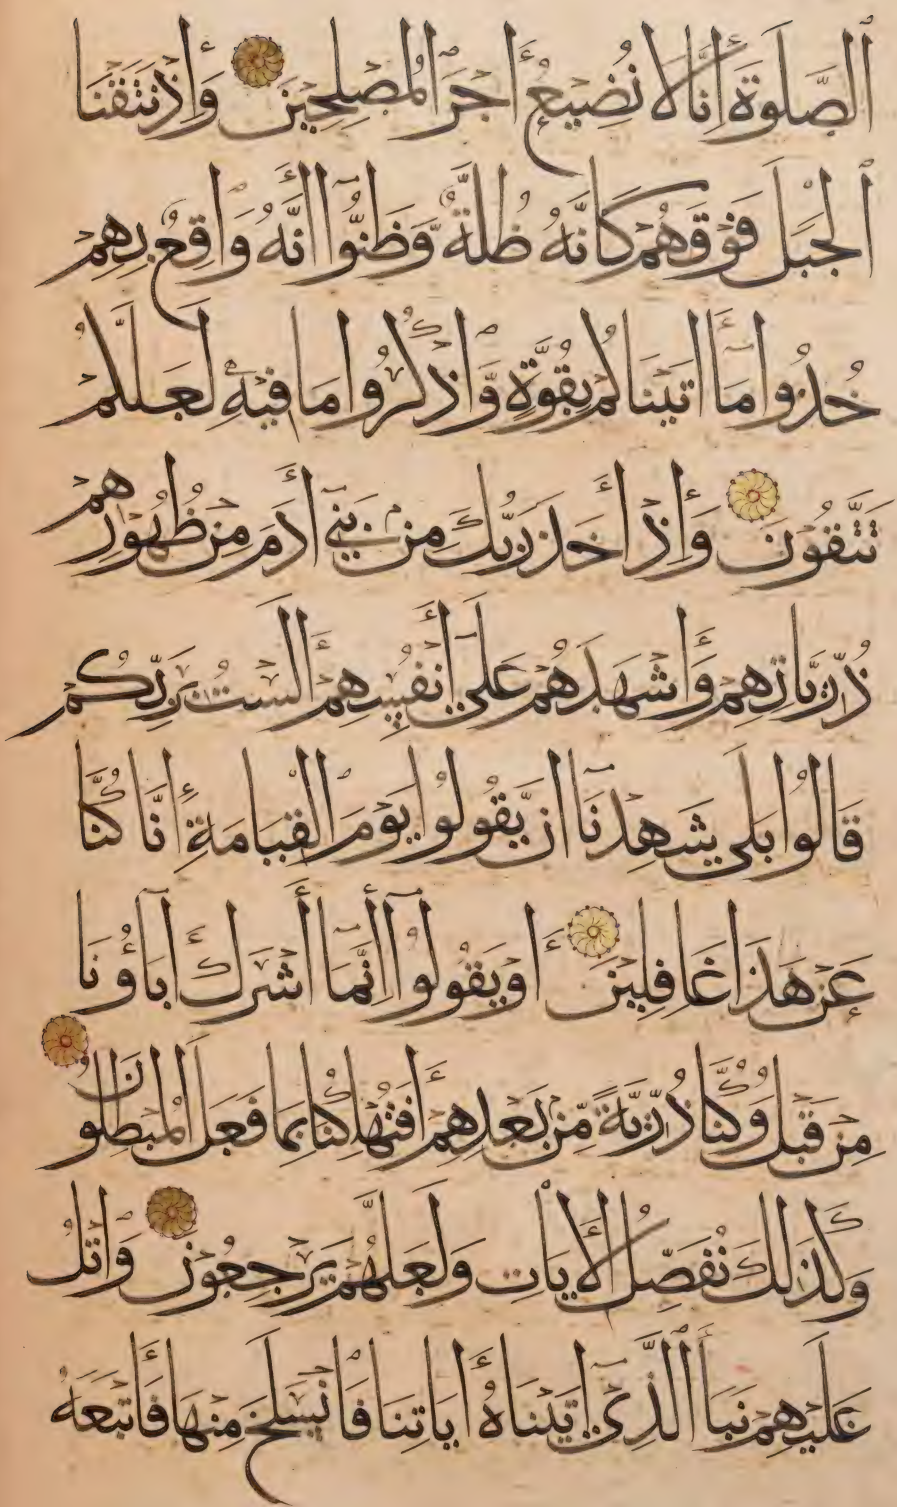 الصَّلَوةَ اِنَّا لَا نُضِيعُ اَجْرَ الْمُصْلِحِينَ وَاِذْ نَتَقْنَا
الْجَبَلَ فَوْقَهُمْ كَاَنَّهُ ظُلَّةٌ وَّظَنُّوا اَنَّهُ وَاقِعٌ بِهِمْ
خُذُوا مَا اتَيْنَاكُمْ بِقُوَّةٍ وَّاذْكُرُوا مَا فِيهِ لَعَلَّكُمْ
تَتَّقُونَ وَاِذْ اَخَذَ رَبُّكَ مِنْ بَنِي ادَمَ مِنْ ظُهُورِهِمْ
ذُرِّيَّاتِهِمْ وَاَشْهَدَهُمْ عَلَى اَنْفُسِهِمْ اَلَسْتُ بِرَبِّكُمْ
قَالُوا بَلَى شَهِدْنَا اَنْ يَّقُولُوا يَوْمَ الْقِيَامَةِ اِنَّا كُنَّا
عَنْ هَذَا غَافِلِينَ اَوْ يَقُولُوا اِنَّمَا اَشْرَكَ ابَاؤُنَا
مِنْ قَبْلُ وَكُنَّا ذُرِّيَّةً مِّنْ بَعْدِهِمْ اَفَتُهْلِكُنَا بِمَا فَعَلَ الْمُبْطِلُونَ
وَكَذَلِكَ نُفَصِّلُ الْايَاتِ وَلَعَلَّهُمْ يَرْجِعُونَ وَاتْلُ
عَلَيْهِمْ نَبَاَ الَّذِي اتَيْنَاهُ ايَاتِنَا فَانْسَلَخَ مِنْهَا فَاَتْبَعَهُ